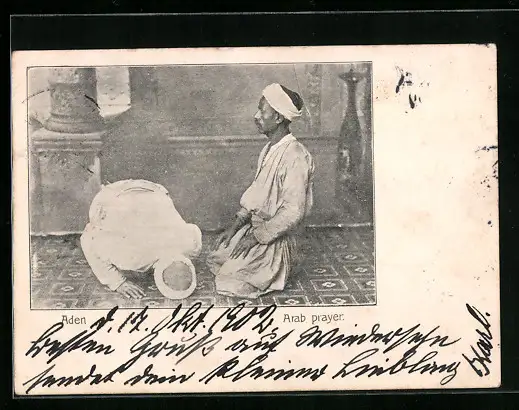 Aden
Arab prayer.
d. 17. Okt. 1902.
Besten Gruß auf Wiedersehn
sendet dein kleiner Liebling
Karl.